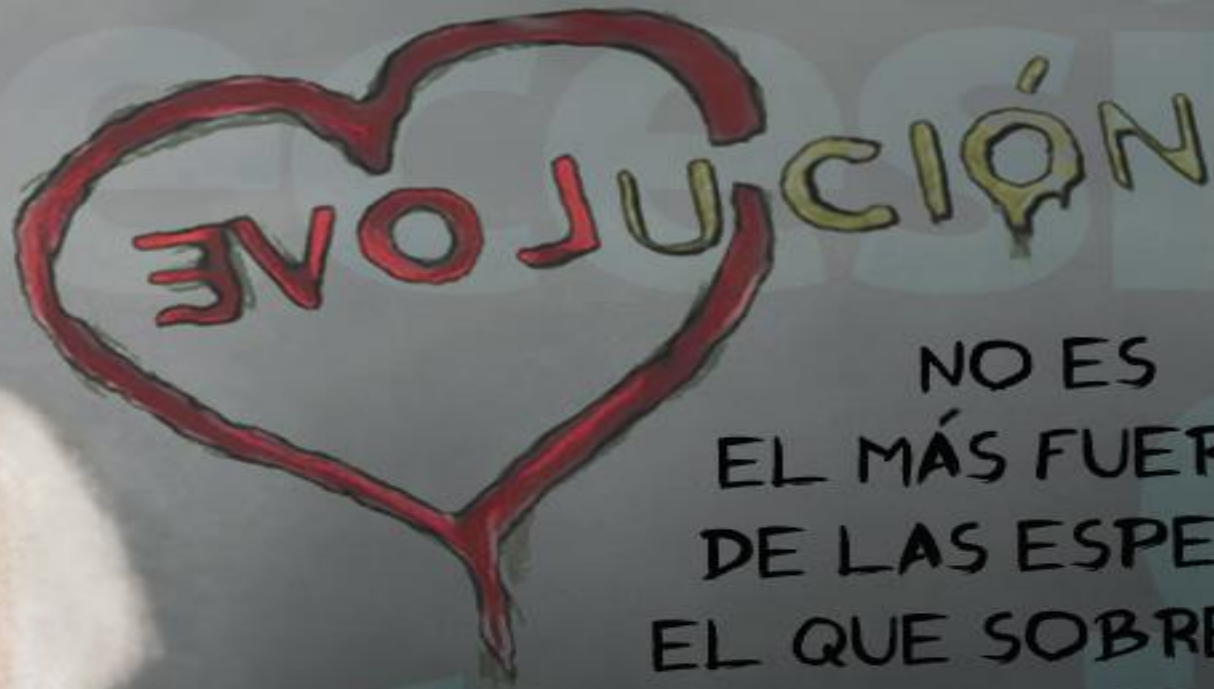 EVOLUCIÓN
NO ES
EL MÁS FUER
DE LAS ESPE
EL QUE SOBRE